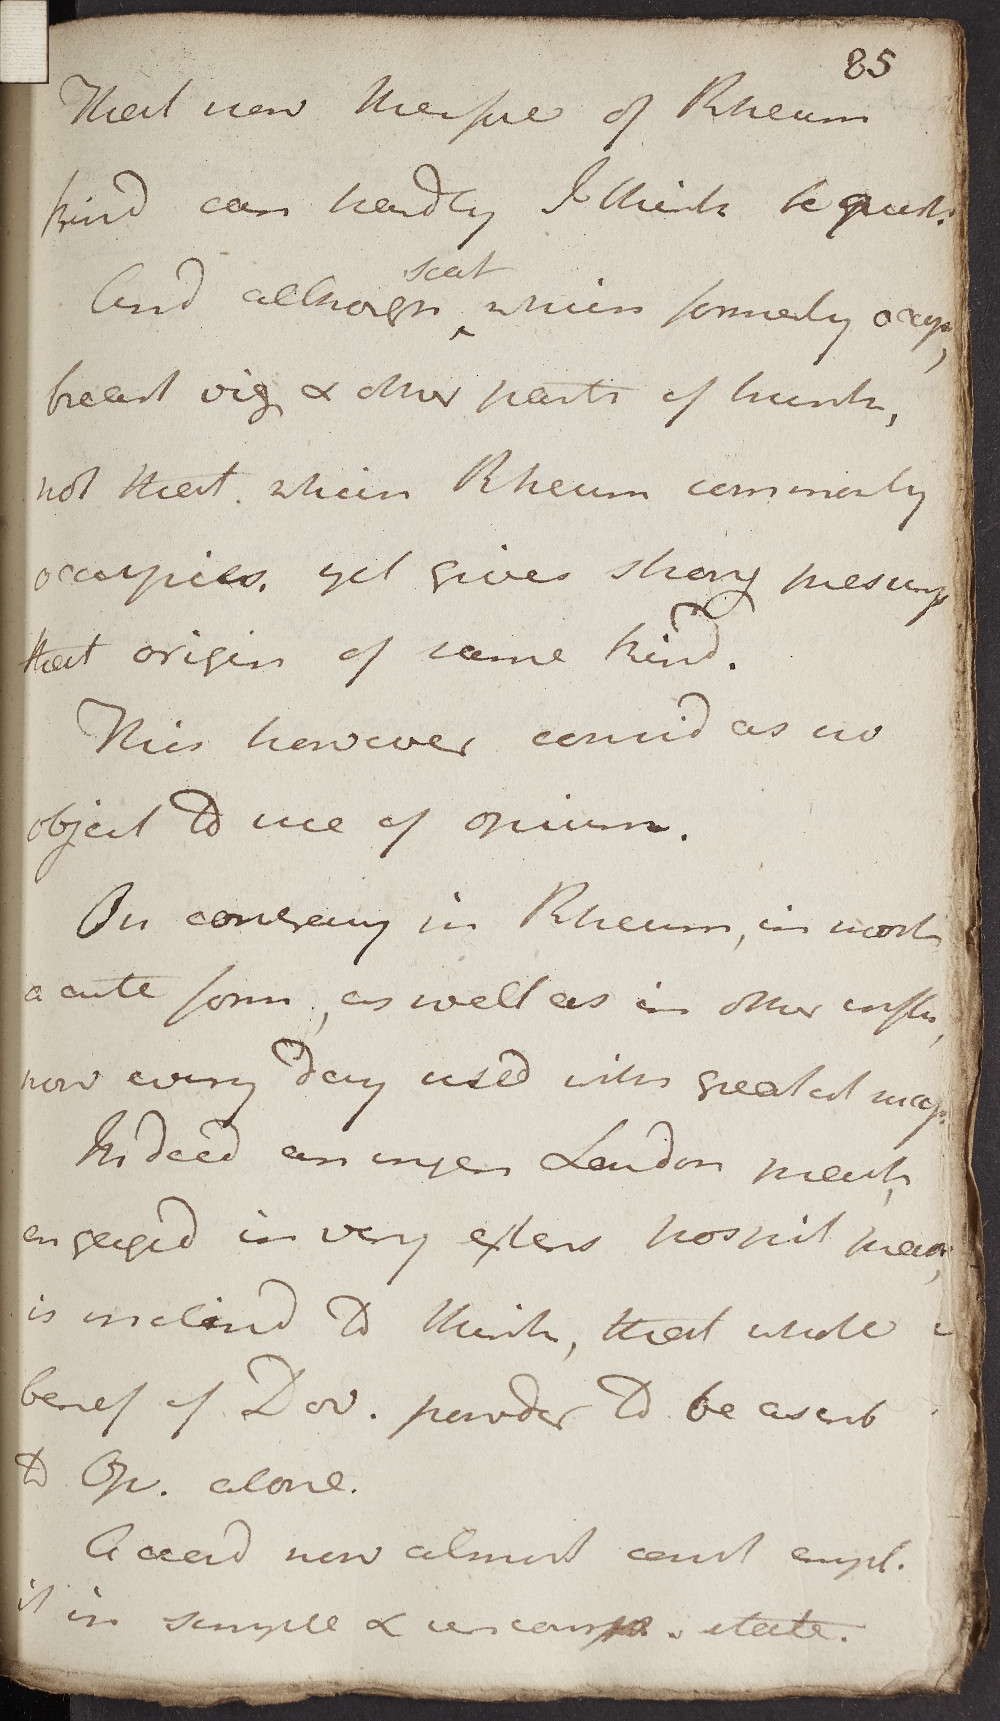 85
That now therefore of Rheum
kind can hardly I think be quest.
And although seat which formerly occup,
breast vig & other parts of trunk,
not that which Rheum commonly
occupies. yet gives strong presump
that origin of same kind.
This however consid as no
object to use of opium.
On contrary in Rheum, in most
acute form, as well as in other
now every day used with greatest
Indeed an ingen London pract,
engaged in very extens hospit prac,
is inclind to think, that whole
benef of Dov. powder to be ascrib
to Op. alone.
Accord now almost const empl.
it in simple & uncomp. state.